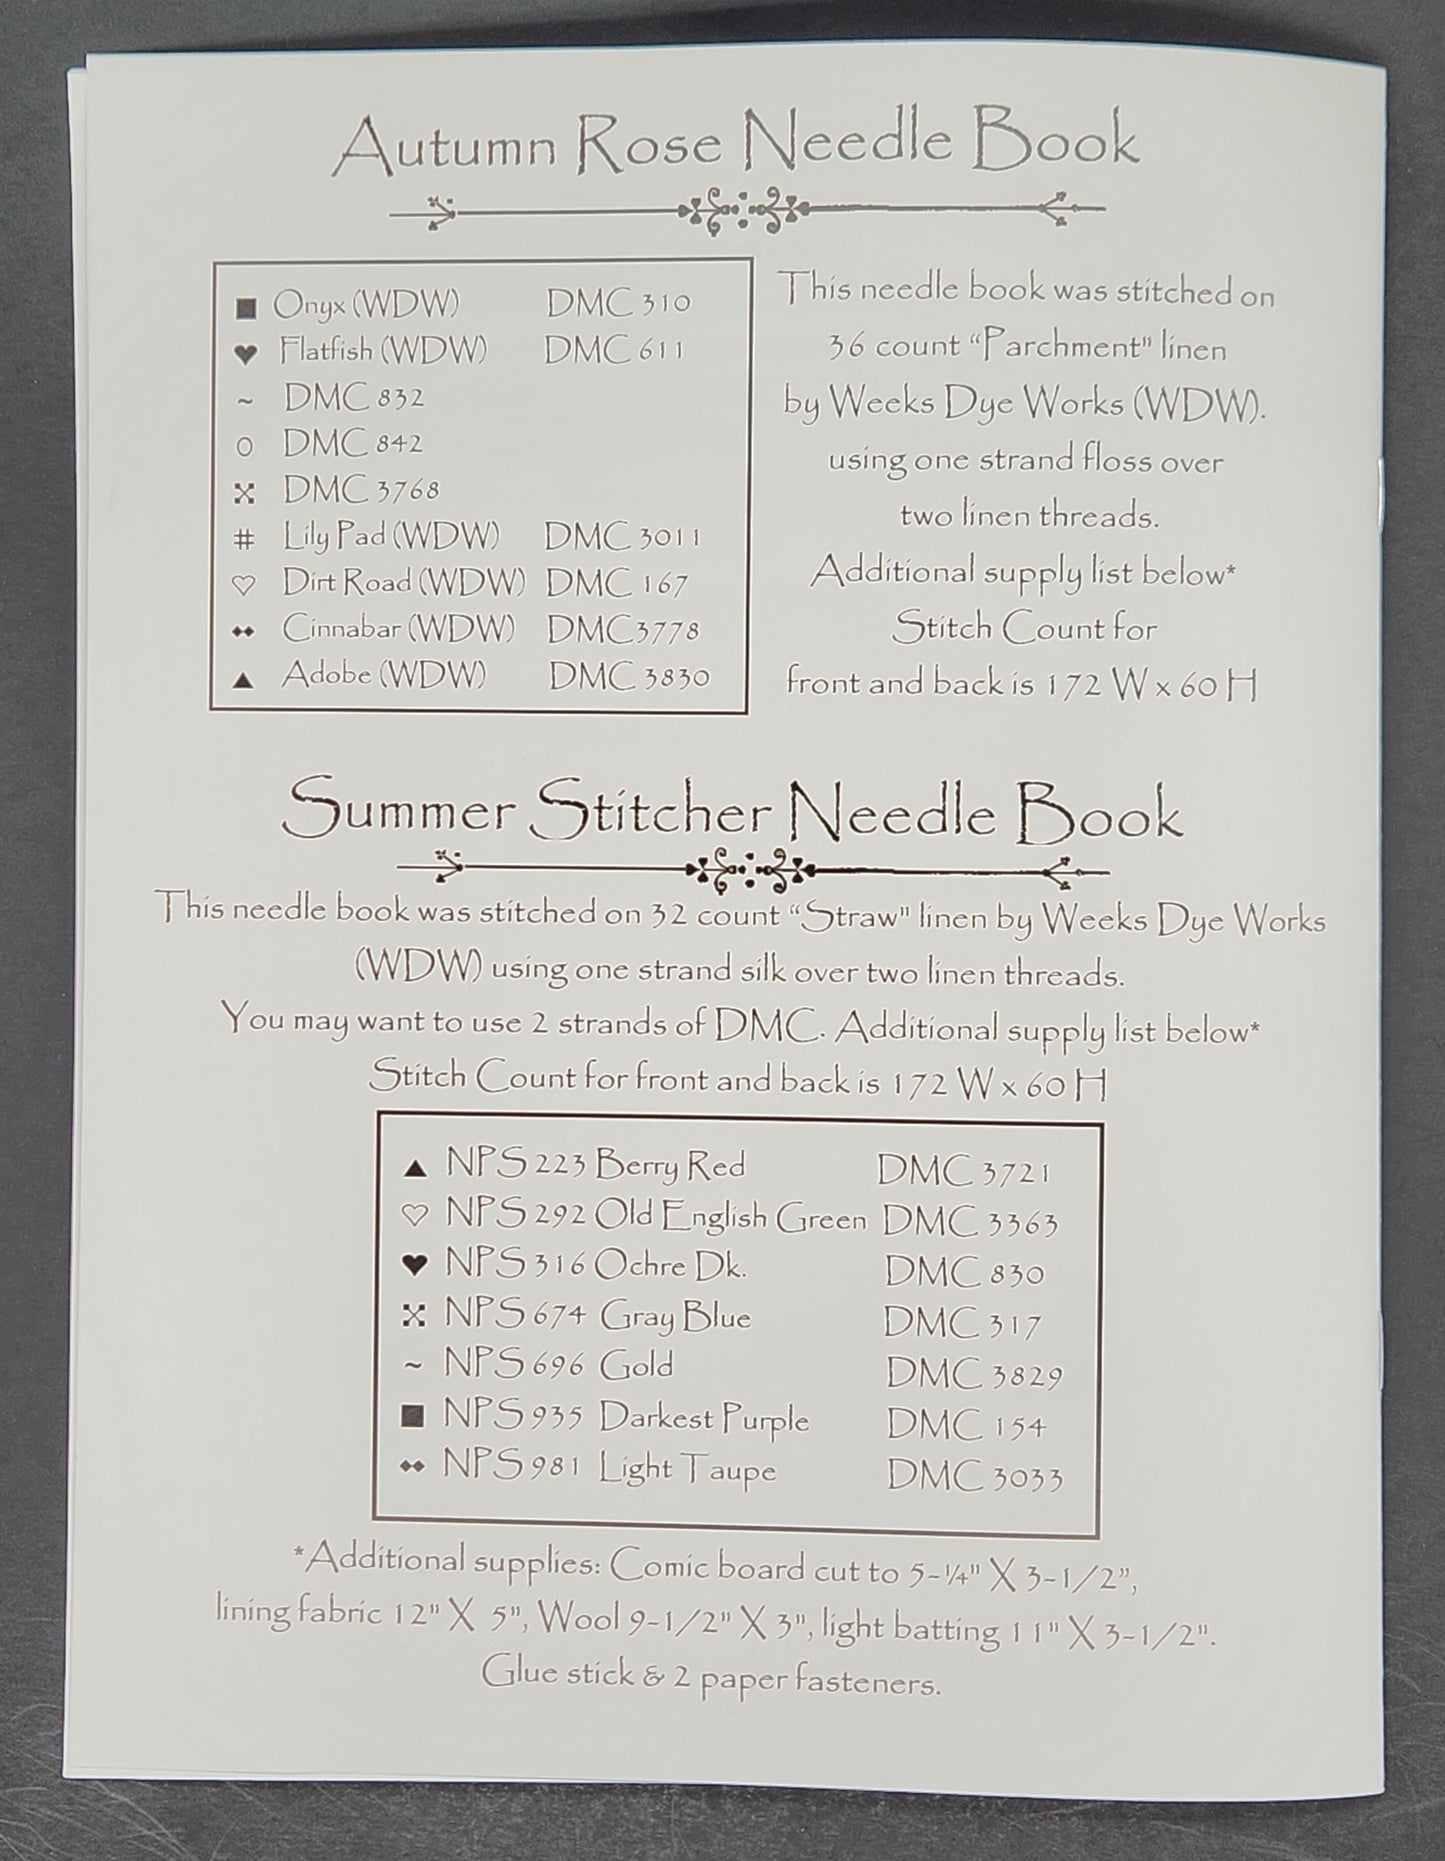 Autumn Rose Needle Book
■ Onyx (WDW) DMC 310
♥ Flatfish (WDW) DMC 611
~ DMC 832
○ DMC 842
DMC 3768
# Lily Pad (WDW) DMC 3011
♡ Dirt Road (WDW) DMC 167
◆◆ Cinnabar (WDW) DMC3778
▲ Adobe (WDW) DMC 3830
This needle book was stitched on
36 count “Parchment" linen
by Weeks Dye Works (WDW).
using one strand floss over
two linen threads.
Additional supply list below*
Stitch Count for
front and back is 172 W x 60 H
Summer Stitcher Needle Book
This needle book was stitched on 32 count “Straw" linen by Weeks Dye Works
(WDW) using one strand silk over two linen threads.
You may want to use 2 strands of DMC. Additional supply list below*
Stitch Count for front and back is 172 W x 60 H
▲ NPS 223 Berry Red DMC 3721
♡ NPS 292 Old English Green DMC 3363
♥ NPS 316 Ochre Dk. DMC 830
NPS 674 Gray Blue DMC 317
~ NPS 696 Gold DMC 3829
■ NPS 935 Darkest Purple DMC 154
◆◆ NPS 981 Light Taupe DMC 3033
*Additional supplies: Comic board cut to 5-¼" X 3-1/2”,
lining fabric 12" X 5", Wool 9-1/2" X 3", light batting 11" X 3-1/2".
Glue stick & 2 paper fasteners.